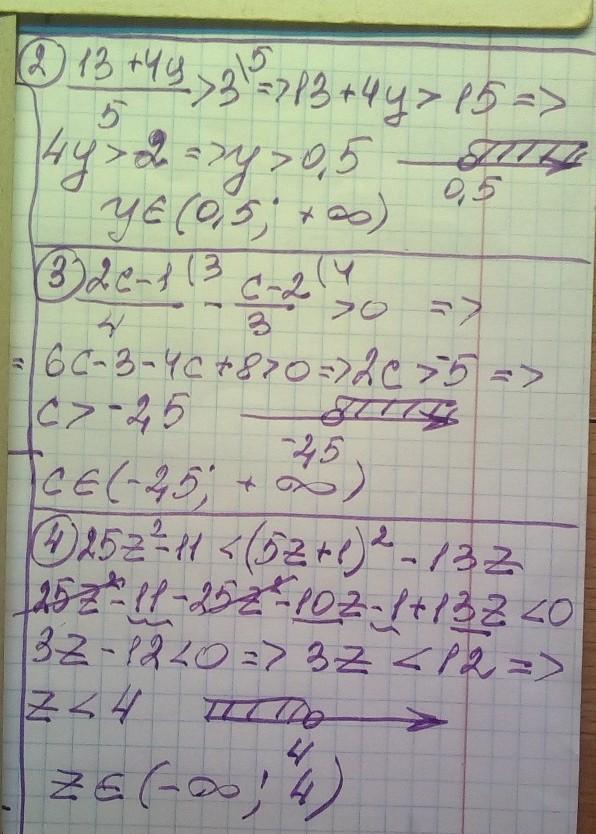 ② 13+4y/5 > 3\5 => 13+4y > 15 =>
4y > 2 => y > 0,5
0,5
y ∈ (0,5; +∞)
③ 2c-1(3/4 - c-2(4/3 > 0 =>
= 6c-3-4c+8>0 => 2c > -5 =>
c > -2,5
-2,5
c ∈ (-2,5; +∞)
④ 25z²-11 < (5z+1)² - 13z
25z²-11-25z²-10z-1+13z < 0
3z-12<0 => 3z < 12 =>
z < 4
4
z ∈ (-∞; 4)